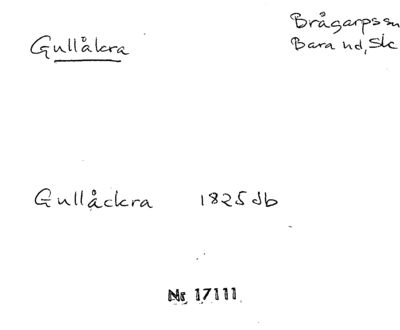 Gullåkra
Brågarpssn
Bara hd, Sk
Gullåckra 1825 db
Nr 17111